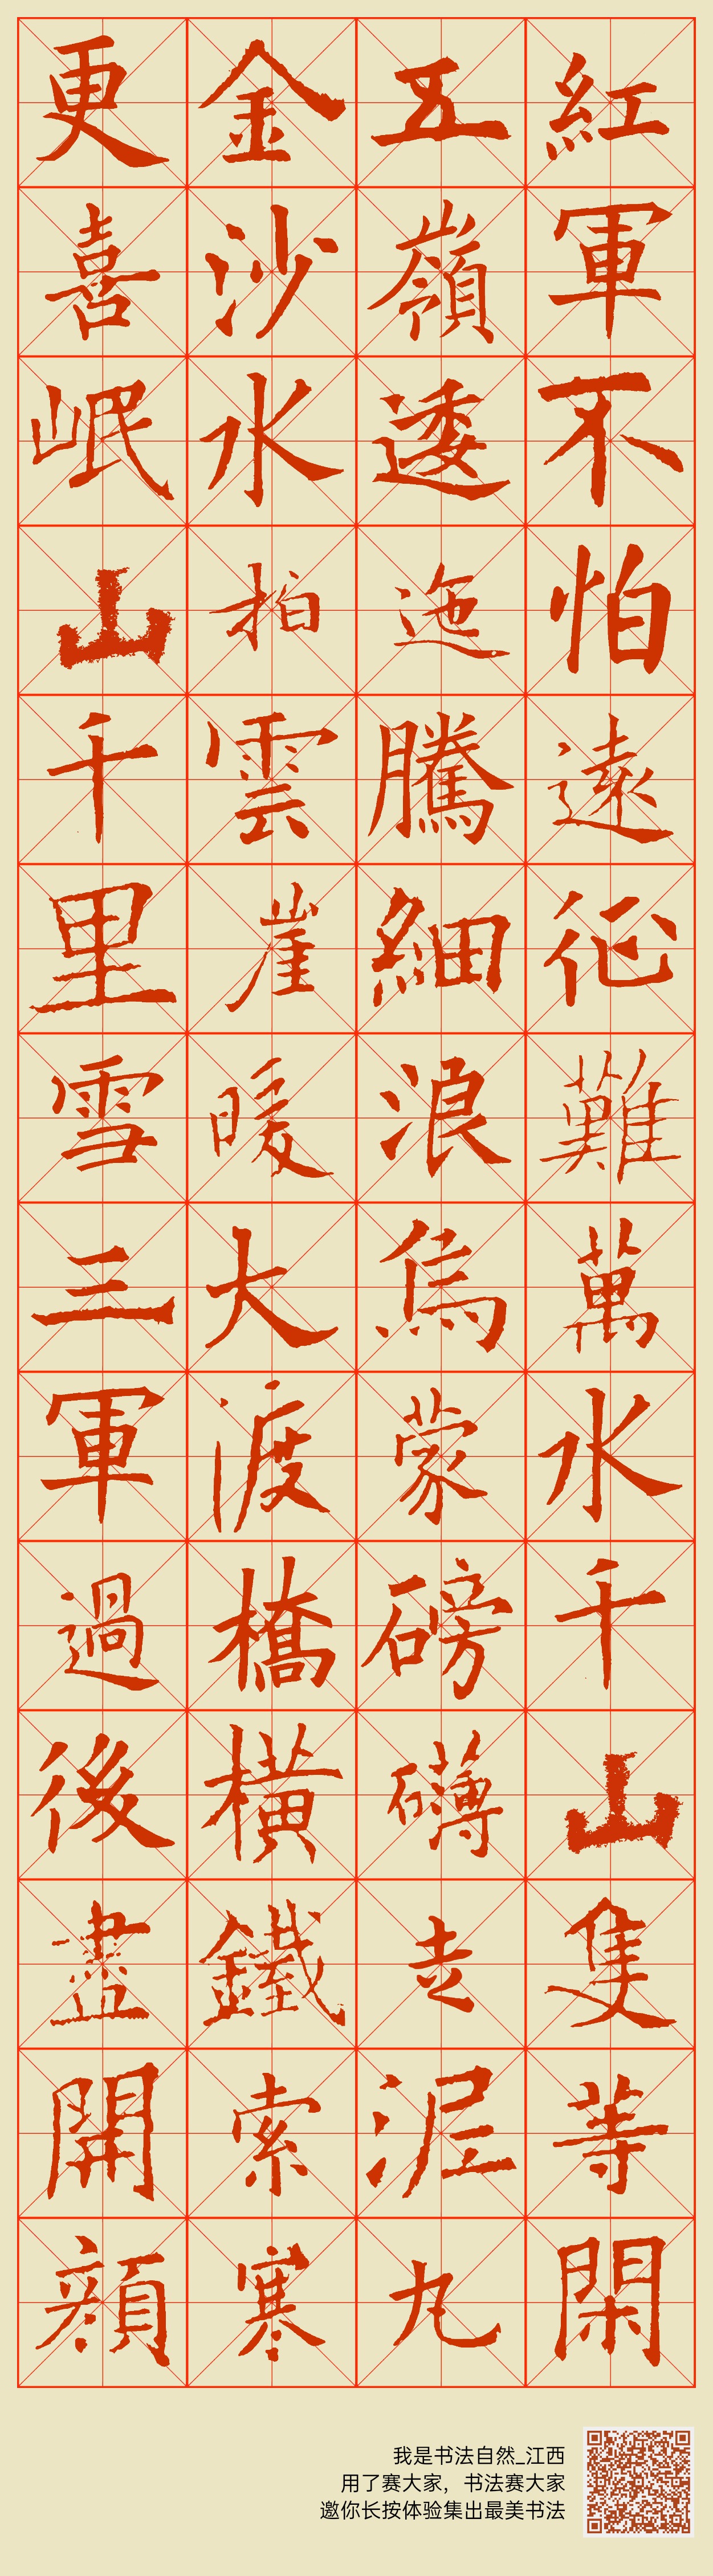 紅軍不怕遠征難萬水千山隻等閑
五嶺逶迤騰細浪烏蒙磅礴走泥丸
金沙水拍雲崖暖大渡橋橫鐵索寒
更喜岷山千里雪三軍過後盡開顏
我是书法自然_江西
用了赛大家，书法赛大家
邀你长按体验集出最美书法